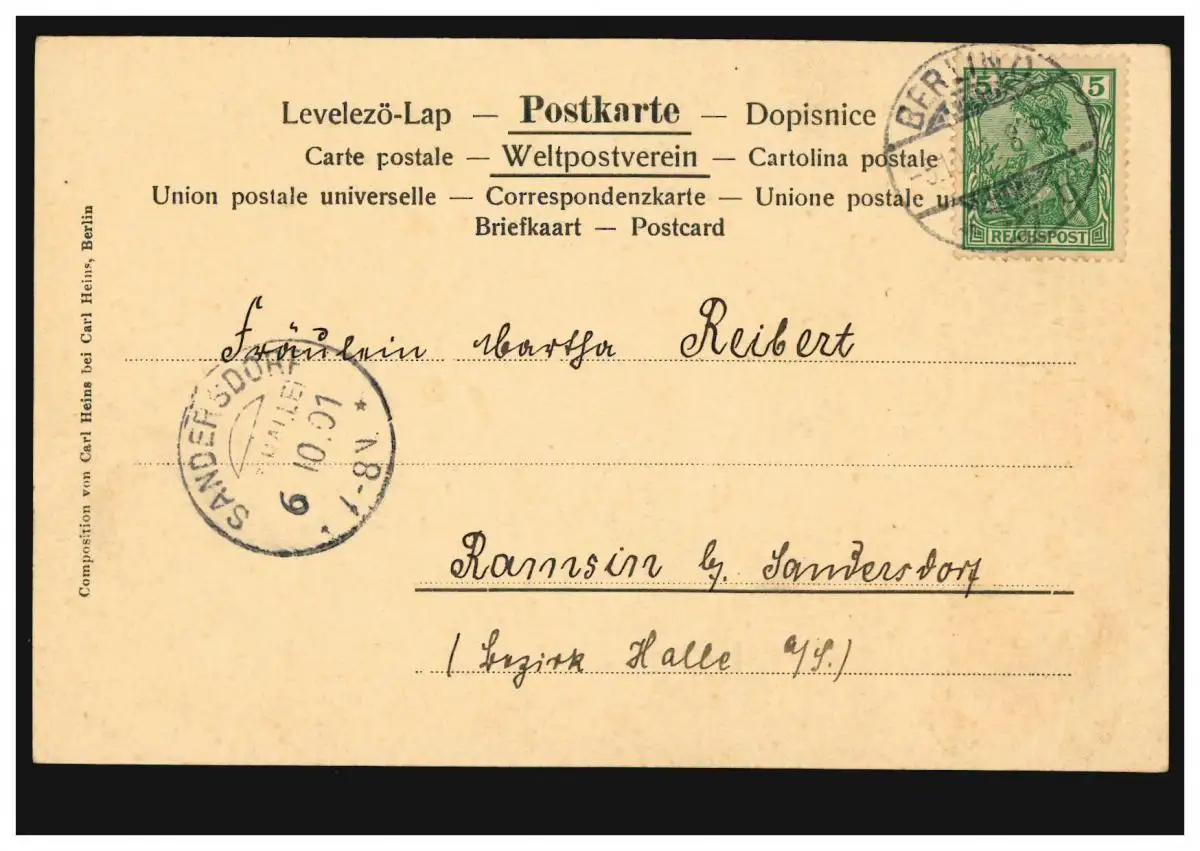 Levelezö-Lap — Postkarte — Dopisnice
Carte postale — Weltpostverein — Cartolina postale
Union postale universelle — Correspondenzkarte — Unione postale
Briefkaart — Postcard
5 5
REICHSPOST
BERLIN
Composition von Carl Heins bei Carl Heins, Berlin
Fräulein Martha Reibert
SANDERSDORF
6 10.01
* N 8-1 *
Ramsin b/ Sandersdorf
(Bezirk Halle a/S.)